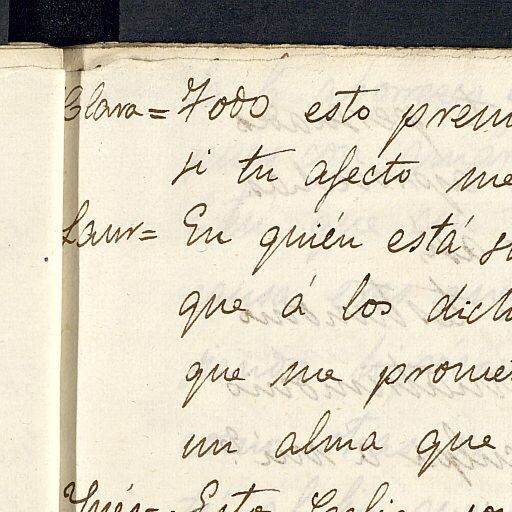 Clara = Todo esto prem
si tu afecto me
Laur = En quién está su
que á los dict
que me promet
un alma que
Ynés = Esto